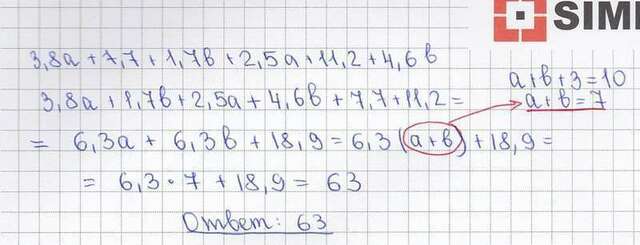 SIMI
3,8a + 7,7 + 1,7b + 2,5a + 11,2 + 4,6b
a+b+3=10
3,8a + 1,7b + 2,5a + 4,6b + 7,7 + 11,2 =
a+b=7
= 6,3a + 6,3b + 18,9 = 6,3(a+b) + 18,9 =
= 6,3 • 7 + 18,9 = 63
Ответ: 63